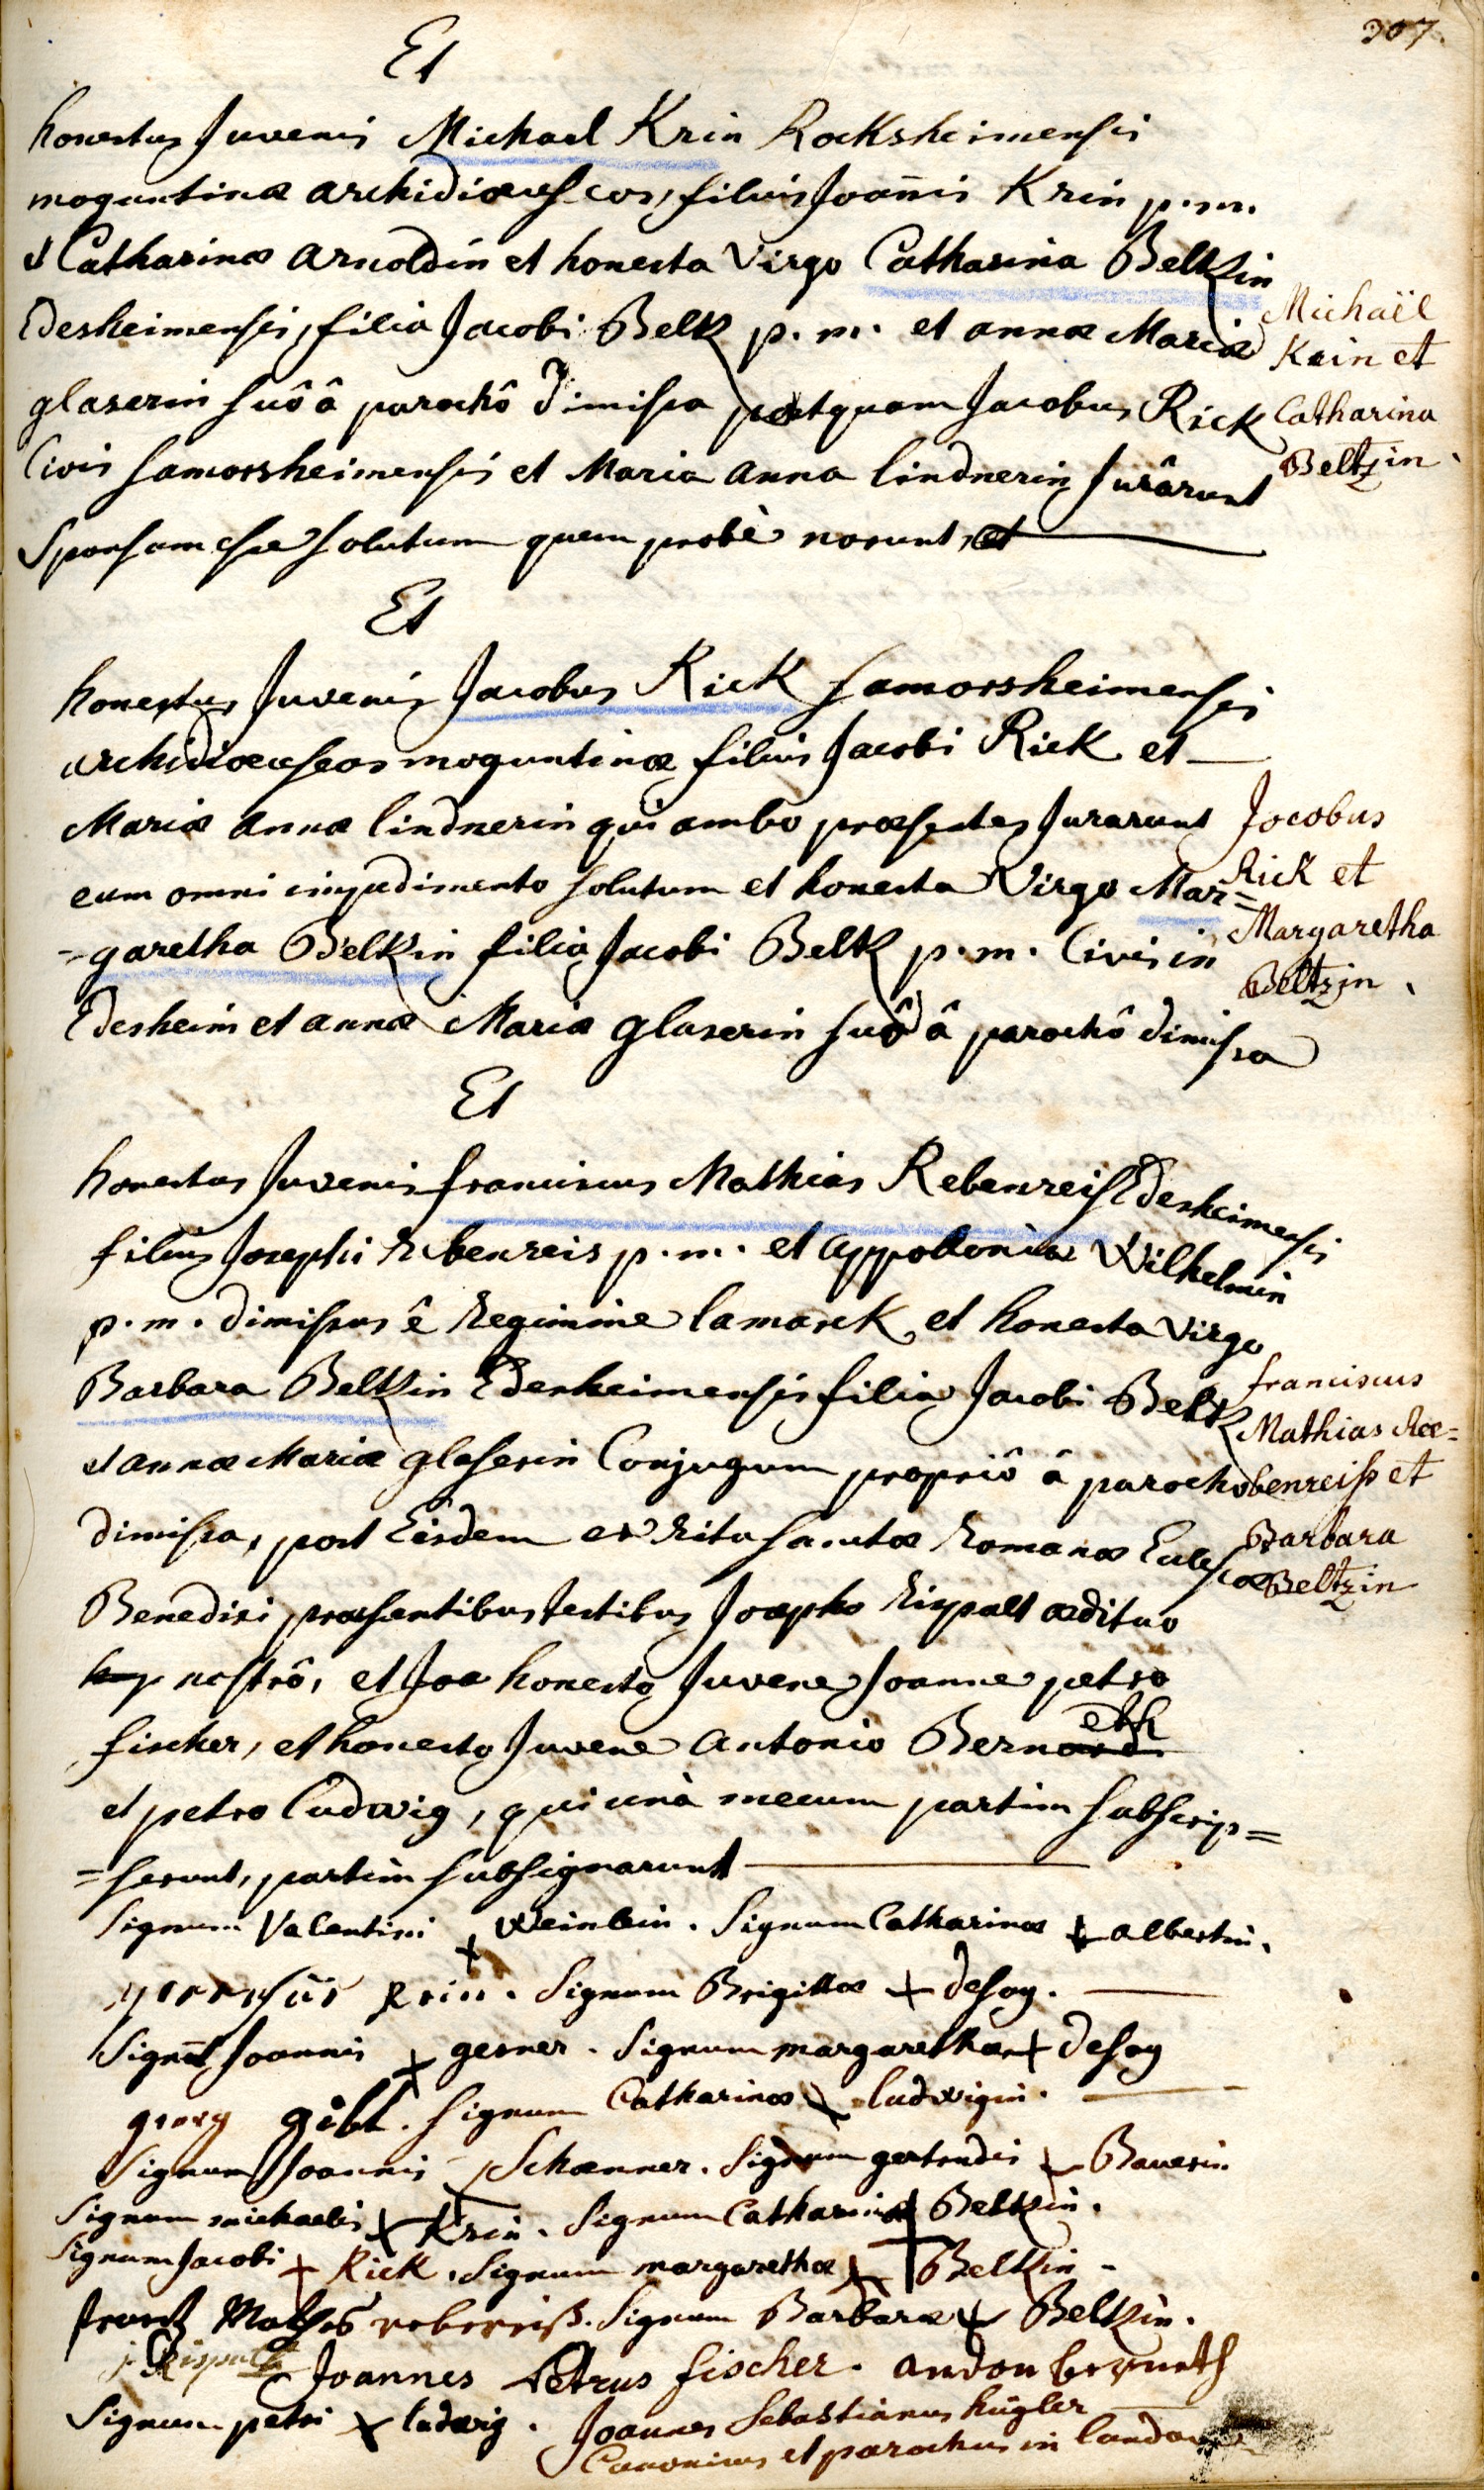 307.
Et
honestus Juvenis Michael Krin Rocksheimensis
moguntinæ archidiœceseos, filius Joannis Krin p.m.
et Catharinæ Arnoldin et honesta Virgo Catharina Beltzin
Edesheimensis, filia Jacobi Beltz p.m. et annæ Mariæ
glaserin suô â parochô dimissa postquam Jacobus Rick
Civis samorsheimensis et Maria Anna lindnerin Jurârunt
Sponsam esse solutum quem probè norunt, et
Michaël
Krin et
Catharina
Beltzin.
Et
honestus Juvenis Jacobus Rick samorsheimensis
archidiœceseos moguntinæ filius Jacobi Rick et
Mariæ annæ lindnerin qui ambo præsentes Jurarunt
eum omni impedimento solutum et honesta Virgo Mar=
=garetha Beltzin filia Jacobi Beltz p.m. Civis in
Edesheim et annæ Mariæ glaserin suô â parochô dimissa
Jacobus
Rick et
Margaretha
Beltzin.
Et
honestus Juvenis franciscus Mathias Rebenreis Edesheimensis
filius Josephi Rebenreis p.m. et Appolloniæ Wilhelmin
p.m. dimissus ê Regimine lamarck et honesta Virgo
Barbara Beltzin Edesheimensis filia Jacobi Beltz
et annæ Mariæ glaserin Conjugum propriô â parochô
dimissa, post Eisdem ex Ritu sanctæ Romanæ Ecclesiæ
Benedixi præsentibus testibus Josepho Rispalt ædituo
nostrô, et Joa honesto Juvene Joanne petro
fischer, et honesto Juvene Antonio Bernardi eth
et petro ludwig, qui unà mecum partim subscrip=
=serunt, partim subsignarunt
franciscus
Mathias Ree=
benreiss et
Barbara
Beltzin
Signum Valentini + Weinlein. Signum Catharinæ + albertin.
Krin. Signum Brigittæ + desoy.
Signum Joannis + gerner. Signum margarethæ + desoy
georg gibl. Signum Catharinæ + ludwigin.
Signum Joannis + Schænner. Signum gertrudis + Bauerin
Signum michaelis + Krin. Signum Catharinæ + Beltzin.
Signum Jacobi + Rick. Signum margarethæ + Beltzin.
frantz Mathes rebereiß. Signum Barbaræ + Beltzin.
j. Rispalt Joannes Petrus fischer. andon berneth
Signum petri + ludwig. Joannes Sebastianus hügler
Canonicus et parochus in landau